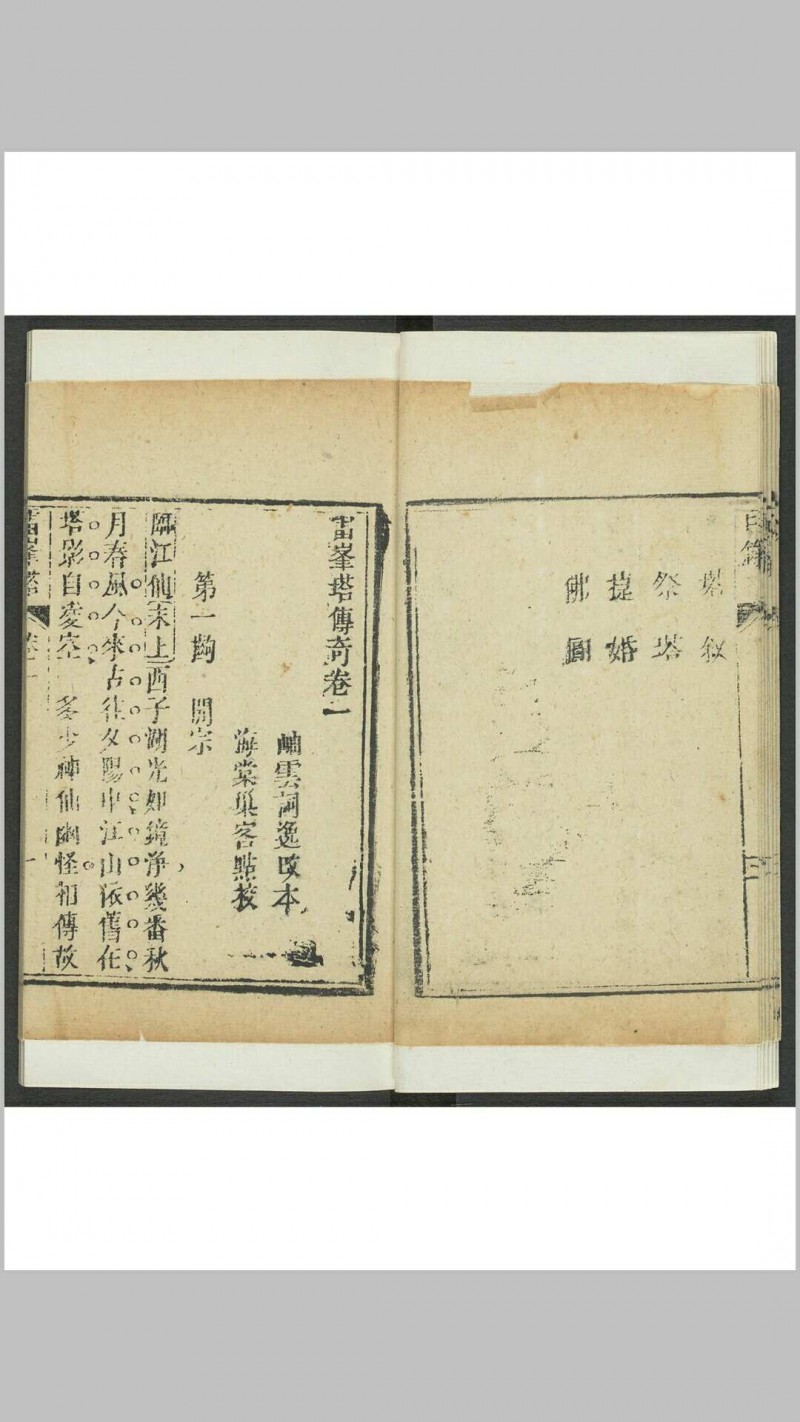 目錄
塔敘
祭塔
捷婚
佛圓
三
雷峯塔傳奇卷一
岫雲詞逸改本
海棠巢客點校
第一齣　開宗
臨江仙末上西子湖光如鏡淨幾番秋
月春風今來古往夕陽中江山依舊在
塔影自凌空　多少神仙幽怪相傳故
雷峯塔　卷一　一